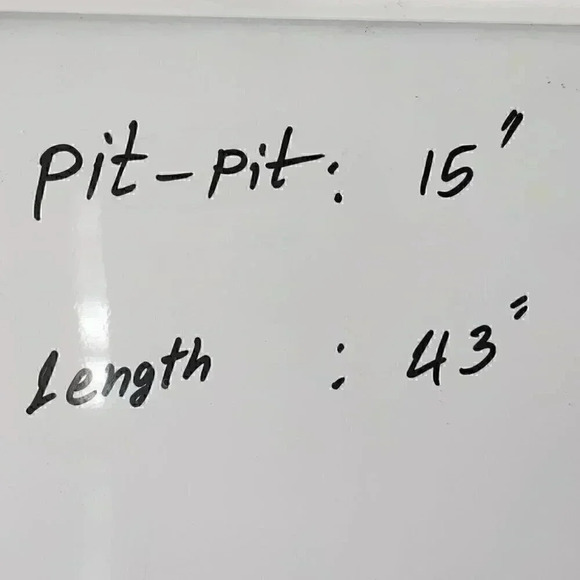 Pit-Pit: 15"
Length : 43"